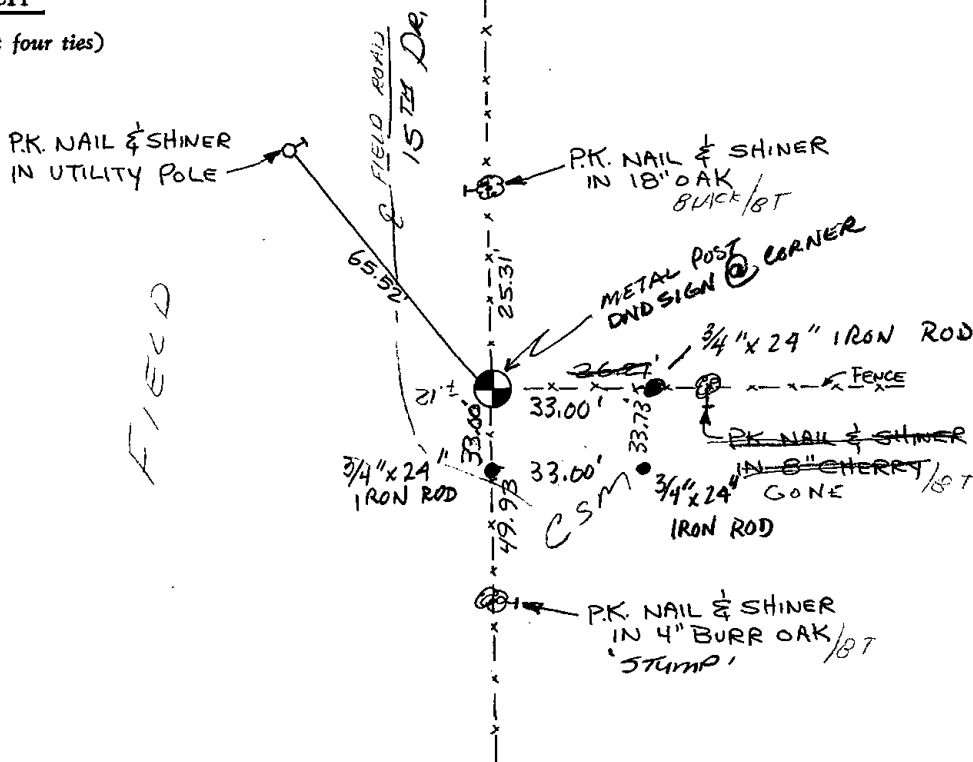 four ties)
P.K. NAIL & SHINER
IN UTILITY POLE
℄ FIELD ROAD
15TH
P.K. NAIL & SHINER
IN 18" OAK
/BT
65.52'
25.31'
METAL POST
DND SIGN @ CORNER
FIELD
3/4" x 24" IRON ROD
36.27'
FENCE
7.12'
33.00'
33.00'
33.73'
P.K. NAIL & SHINER
IN 8" CHERRY/BT
GONE
3/4" x 24"
IRON ROD
33.00'
3/4" x 24"
IRON ROD
CSM
49.93
P.K. NAIL & SHINER
IN 4" BURR OAK/BT
'STUMP'